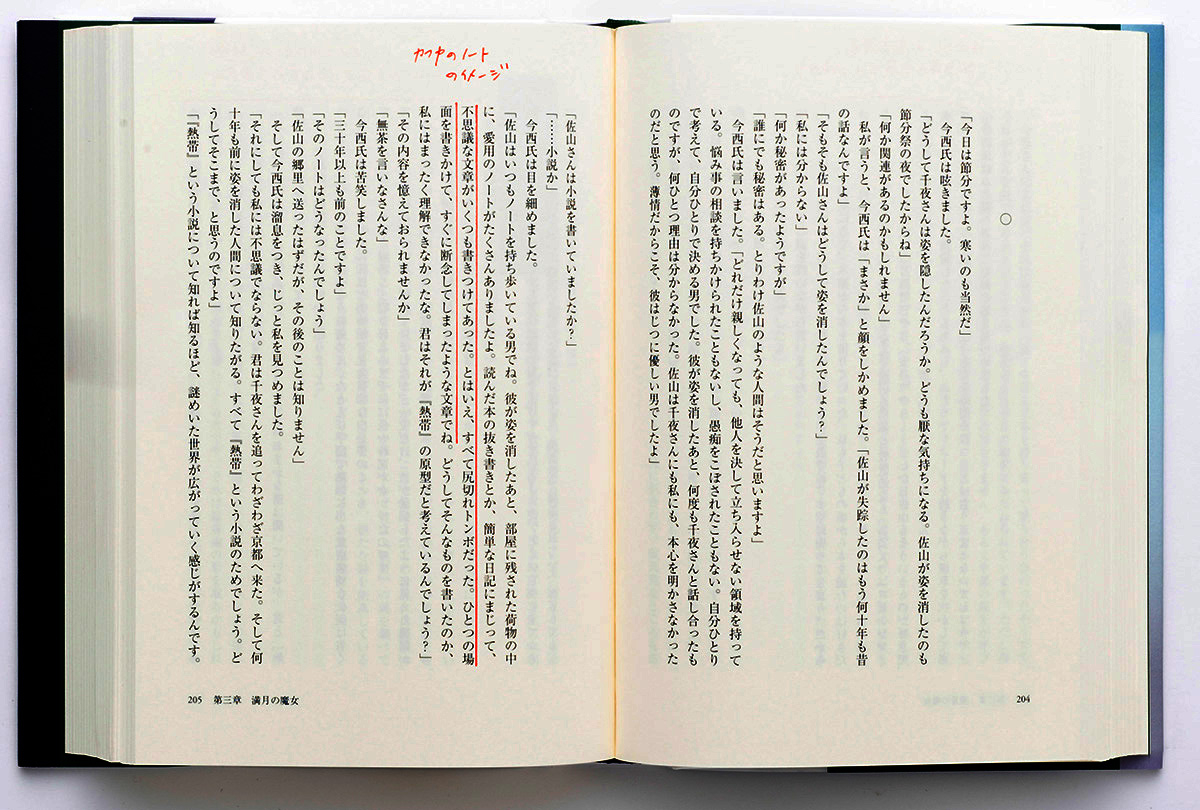 〇
「今日は節分ですよ。寒いのも当然だ」
今西氏は呟きました。
「どうして千夜さんは姿を隠したんだろうか。どうも厭な気持ちになる。佐山が姿を消したのも
節分祭の夜でしたからね」
「何か関連があるのかもしれません」
私が言うと、今西氏は「まさか」と顔をしかめました。「佐山が失踪したのはもう何十年も昔
の話なんですよ」
「そもそも佐山さんはどうして姿を消したんでしょう？」
「私には分からない」
「何か秘密があったようですが」
「誰にでも秘密はある。とりわけ佐山のような人間はそうだと思いますよ」
今西氏は言いました。「どれだけ親しくなっても、他人を決して立ち入らせない領域を持って
いる。悩み事の相談を持ちかけられたこともないし、愚痴をこぼされたこともない。自分ひとり
で考えて、自分ひとりで決める男でした。彼が姿を消したあと、何度も千夜さんと話し合ったも
のですが、何ひとつ理由は分からなかった。佐山は千夜さんにも私にも、本心を明かさなかった
のだと思う。薄情だからこそ、彼はじつに優しい男でしたよ」
204
カフカのノート
のイメージ
「佐山さんは小説を書いていましたか？」
「……小説か」
今西氏は目を細めました。
「佐山はいつもノートを持ち歩いている男でね。彼が姿を消したあと、部屋に残された荷物の中
に、愛用のノートがたくさんありましたよ。読んだ本の抜き書きとか、簡単な日記にまじって、
不思議な文章がいくつも書きつけてあった。とはいえ、すべて尻切れトンボだった。ひとつの場
面を書きかけて、すぐに断念してしまったような文章でね。どうしてそんなものを書いたのか、
私にはまったく理解できなかったな。君はそれが『熱帯』の原型だと考えているんでしょう？」
「その内容を憶えておられませんか」
「無茶を言いなさんな」
今西氏は苦笑しました。
「三十年以上も前のことですよ」
「そのノートはどうなったんでしょう」
「佐山の郷里へ送ったはずだが、その後のことは知りません」
そして今西氏は溜息をつき、じっと私を見つめました。
「それにしても私には不思議でならない。君は千夜さんを追ってわざわざ京都へ来た。そして何
十年も前に姿を消した人間について知りたがる。すべて『熱帯』という小説のためでしょう。ど
うしてそこまで、と思うのですよ」
「『熱帯』という小説について知れば知るほど、謎めいた世界が広がっていく感じがするんです。
205 第三章 満月の魔女